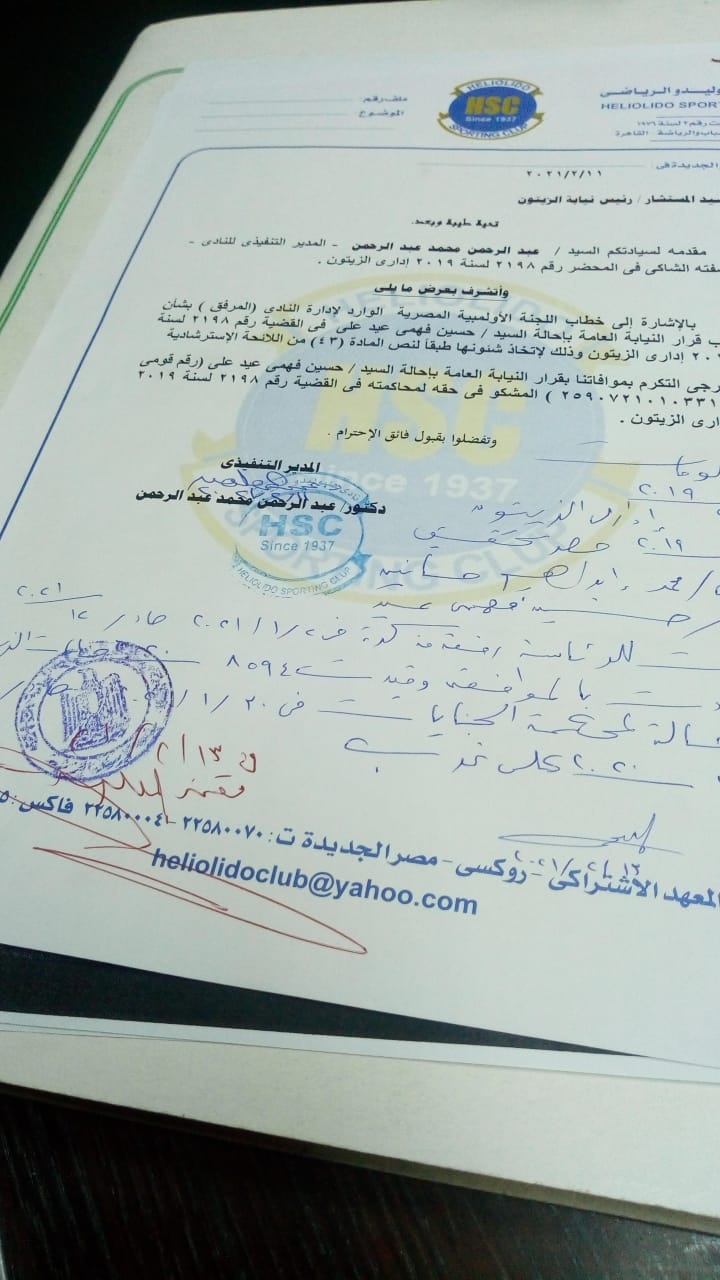 ملف رقم:
الموضوع:
HELIOLIDO
HSC
Since 1937
SPORTING CLUP
وليدو الرياضى
HELIOLIDO SPOR
ت رقم ٢ لسنة ١٩٧٦
باب والرياضة - القاهرة
الجديدة فى:
٢٠٢١/٢/١١
سيد المستشار / رئيس نيابة الزيتون
تحية طيبة وبعد.
مقدمه لسيادتكم السيد / عبد الرحمن محمد عبد الرحمن - المدير التنفيذى للنادى -
صفته الشاكى فى المحضر رقم ٢١٩٨ لسنة ٢٠١٩ إدارى الزيتون .
وأتشرف بعرض ما يلى
بالإشارة إلى خطاب اللجنة الأولمبية المصرية الوارد لإدارة النادى (المرفق ) بشأن
ب قرار النيابة العامة بإحالة السيد / حسين فهمى عيد على فى القضية رقم ٢١٩٨ لسنة
٢٠ إدارى الزيتون وذلك لإتخاذ شئونها طبقاً لنص المادة (٤٣) من اللائحة الإسترشادية
رجى التكرم بموافاتنا بقرار النيابة العامة بإحالة السيد / حسين فهمى عيد على (رقم قومى
٢٥٩٠٧٢١٠١٠٣٣١ ) المشكو فى حقه لمحاكمته فى القضية رقم ٢١٩٨ لسنة ٢٠١٩
دارى الزيتون .
وتفضلوا بقبول فائق الإحترام .
المدير التنفيذى
دكتور/ عبد الرحمن محمد عبد الرحمن
HSC
Since 1937
HELIOLIDO SPORTING CLUP
٢٠١٩
إدارى الزيتون
٢٠١٩ حصر تحقيق
/ محمد إبراهيم حسانين
حسين فهمى عيد
٢٠٢١
بالموافقة وقيدت ٨٥٩٤
حالة لمحكمة الجنايات فى ٢٠/١
المعهد الاشتراكى - روكسى - مصر الجديدة ت: ٢٢٥٨٠٠٧٠ - ٢٢٥٨٠٠٠٤ فاكس:
heliolidoclub@yahoo.com